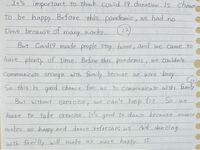 It's important to think covid 19 duration is chance
to be happy. Before this pandemic, we had no
time because of many works. (12)
But Covid19 made people stay home, and we came to
have plenty of time. Before this pandemic, we couldn't
communicate enough with family because we were busy.
So this is good chance for us to communicate with family
But without exercise, we can't keep fit. So we
have to take exercise. It's good to dance because music
makes us happy and dance refreshes us. And dancing
with family will make us more happy. It